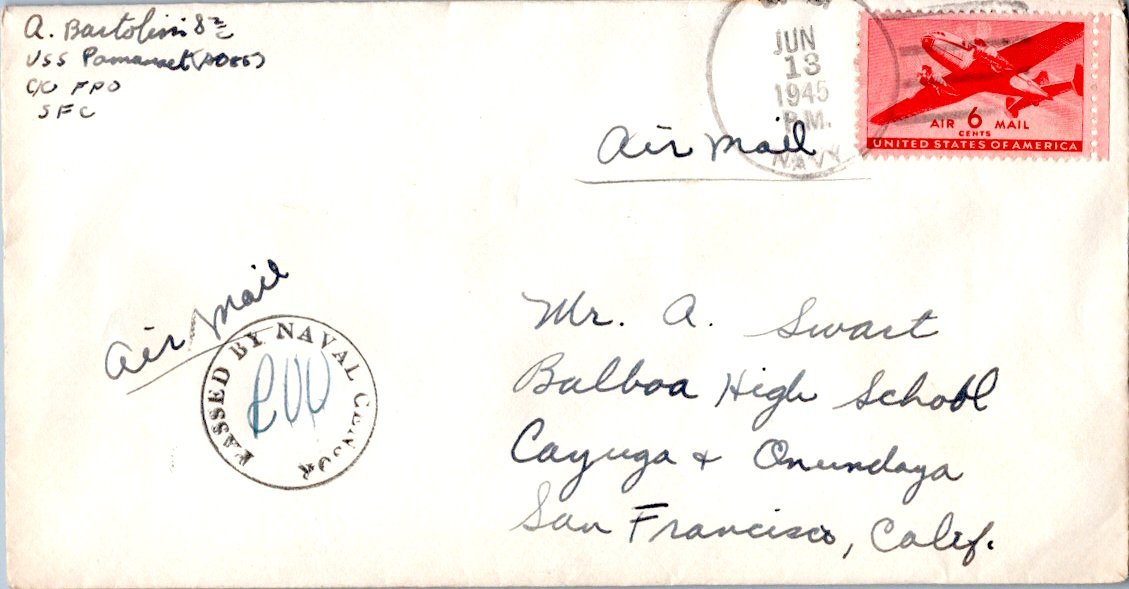 A. Bartolini S 2/c
USS Pamanset (AO85)
C/O FPO
SFC
JUN
13
1945
P.M.
NAVY
AIR 6 MAIL
CENTS
UNITED STATES OF AMERICA
Air Mail
Air Mail
PASSED BY NAVAL CENSOR
Mr. A. Swart
Balboa High School
Cayuga + Onundaya
San Francisco, Calif.